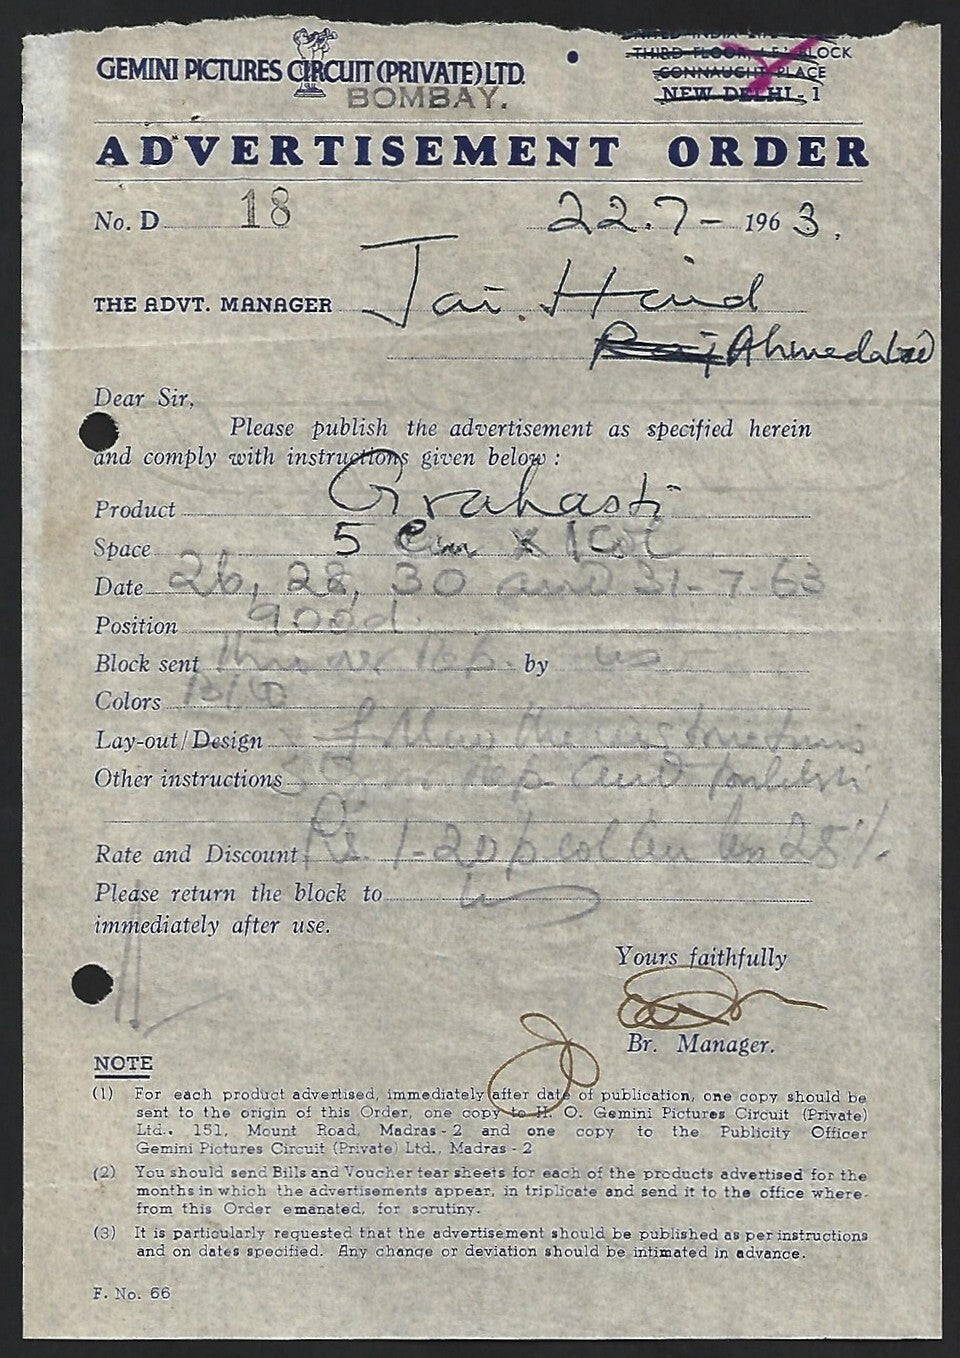 GEMINI PICTURES CIRCUIT (PRIVATE) LTD.
BOMBAY.
THIRD FLOOR, 'E' BLOCK
CONNAUGHT PLACE
NEW DELHI-1
ADVERTISEMENT ORDER
No. D 18 22.7- 1963.
THE ADVT. MANAGER Jai. Hind
Ahmedabad
Dear Sir,
Please publish the advertisement as specified herein
and comply with instructions given below :
Product Grahasti
Space 5 cm x 1 Col
Date 26, 28, 30 and 31-7-63
Position good.
Block sent by us
Colors
Lay-out/Design follow the instructions
Other instructions and publish
Rate and Discount Rs. 1-20 p col cm less 25%.
Please return the block to us
immediately after use.
Yours faithfully
Br. Manager.
NOTE
(1) For each product advertised, immediately after date of publication, one copy should be
sent to the origin of this Order, one copy to H. O. Gemini Pictures Circuit (Private)
Ltd., 151, Mount Road, Madras-2 and one copy to the Publicity Officer
Gemini Pictures Circuit (Private) Ltd., Madras-2
(2) You should send Bills and Voucher tear sheets for each of the products advertised for the
months in which the advertisements appear, in triplicate and send it to the office where-
from this Order emanated, for scrutiny.
(3) It is particularly requested that the advertisement should be published as per instructions
and on dates specified. Any change or deviation should be intimated in advance.
F. No. 66